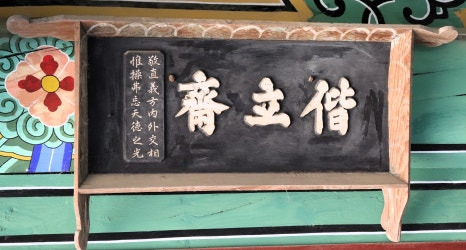 偕立齋
敬直義方內外交相
惟操弗忘天德之光